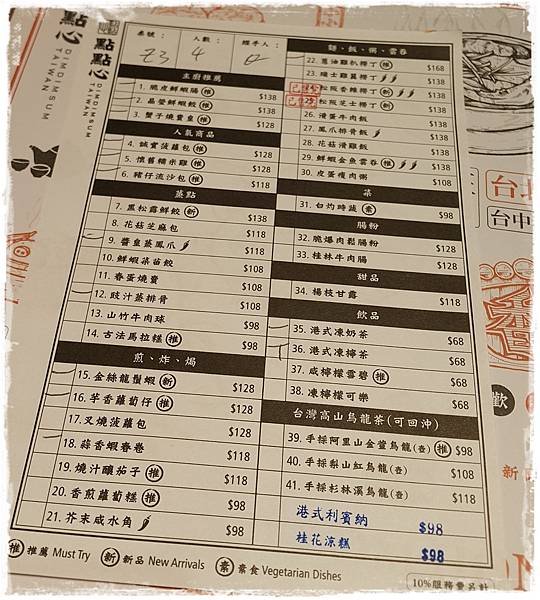 點點心
DIMDIMSUM
TAIWAN
點點心
DIMDIMSUM
TAIWAN
桌號： 人數： 經手人：
23 4
主廚推薦
1. 脆皮鮮蝦腸 推 $138
2. 晶瑩鮮蝦餃 推 $138
3. 蟹子燒賣皇 推 $138
人氣商品
4. 誠實菠蘿包 推 $128
5. 懷舊糯米雞 推 $128
6. 豬仔流沙包 推 $118
蒸點
7. 黑松露鮮餃 新 $138
8. 花菇芝麻包 $118
9. 醬皇蒸鳳爪 $118
10. 鮮蝦菜苗餃 $108
11. 春蛋燒賣 $108
12. 豉汁蒸排骨 $108
13. 山竹牛肉球 $98
14. 古法馬拉糕 推 $98
煎、炸、焗
15. 金絲龍鬚蝦 新 $128
16. 芋香蘿蔔仔 推 $128
17. 叉燒菠蘿包 $128
18. 蒜香蝦春卷 $118
19. 燒汁釀茄子 推 $118
20. 香煎蘿蔔糕 推 $98
21. 芥末咸水角 $98
麵、飯、粥、雲吞
22. 蔥油雞扒撈丁 推 $168
23. $138
松阪香辣撈丁 新 $138
松阪芝士撈丁 $138
26. 滑蛋牛肉飯 $138
27. 鳳爪排骨飯 $138
28. 花菇滑雞飯 $138
29. 鮮蝦金魚雲吞 推 $138
30. 皮蛋瘦肉粥 $108
菜
31. 白灼時蔬 素 $98
腸粉
32. 脆爆肉鬆腸粉 $138
33. 桂林牛肉腸 $108
甜品
34. 楊枝甘露 $118
飲品
35. 港式凍奶茶 $68
36. 港式凍檸茶 $68
37. 咸檸檬雪碧 推 $68
38. 凍檸檬可樂 $68
台灣高山烏龍茶(可回沖)
39. 手採阿里山金萱烏龍(壺) 推 $98
40. 手採梨山紅烏龍(壺) $108
41. 手採杉林溪烏龍(壺) $118
港式利賓納 $98
桂花涼糕 $98
推 推薦 Must Try 新 新品 New Arrivals 素 素食 Vegetarian Dishes
10%服務費另計
台北
台中
歡
新